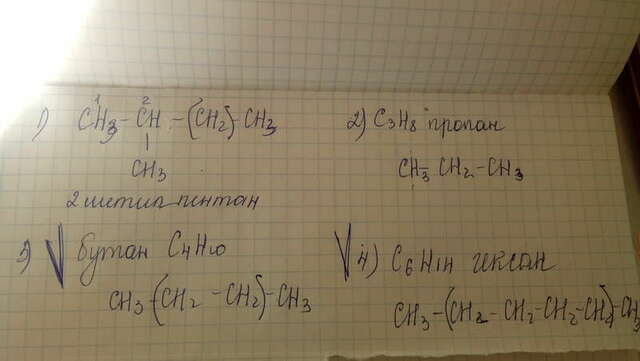 1) CH₃ - CH - (CH₂) - CH₃
1 2
|
CH₃
2 метил пентан
2) C₃H₈ пропан
CH₃ CH₂ - CH₃
3) бутан C₄H₁₀
CH₃ - (CH₂ - CH₂) - CH₃
4) C₆H₁₄ гексан
CH₃ - (CH₂ - CH₂ - CH₂ - CH₂) - CH₃